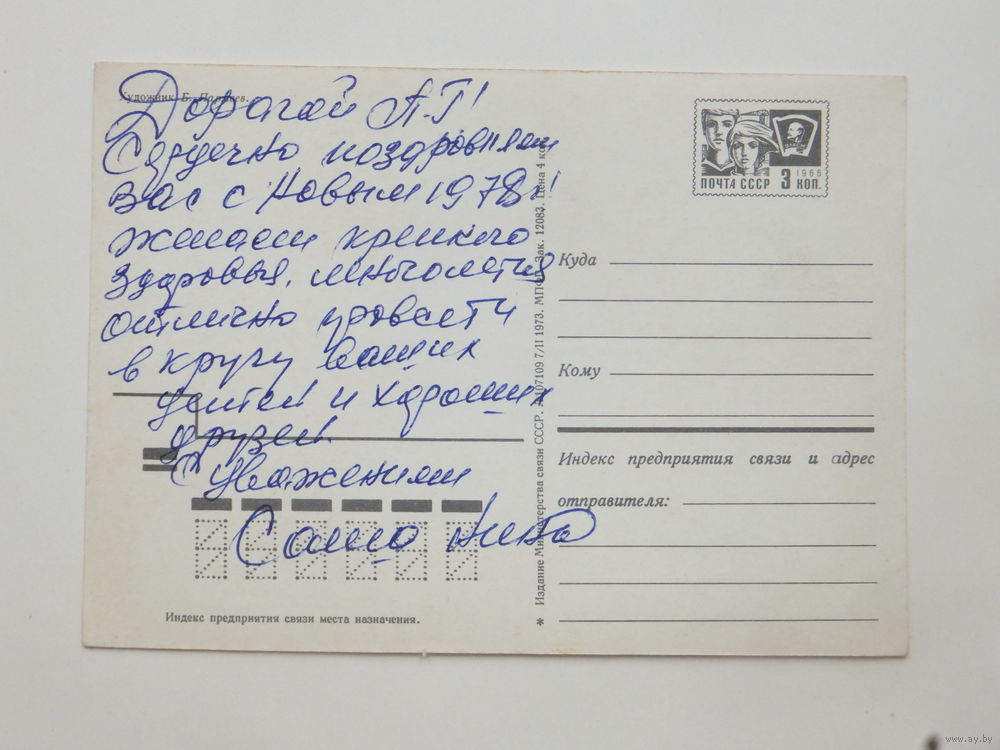 Художник Б.
Дорогой А.Г!
Сердечно поздравляем
Вас с Новым 1978 г!
желаем крепкого
здоровья, многолетия
отлично провести
в кругу ваших
детей и хороших
друзей.
С уважением
Саша Нина
Индекс предприятия связи места назначения.
* Издание Министерства связи СССР. 107109 7/II 1973. Зак. 12083. Цена 4 коп.
ПОЧТА СССР 3 КОП.
1966
ВЛКСМ
Куда
Кому
Индекс предприятия связи и адрес
отправителя:
www.ay.by